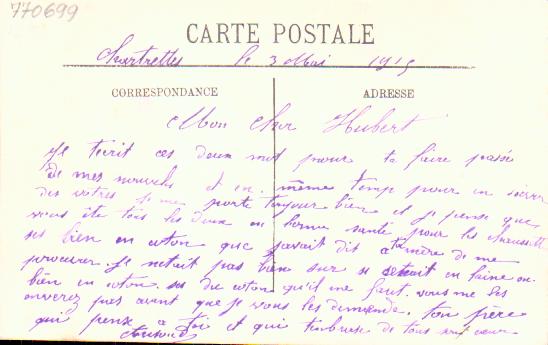 770699
CARTE POSTALE
Chartrettes le 3 Mai 1915
CORRESPONDANCE
ADRESSE
Mon cher Hubert
Je técrit ces deux mot pour te faire passé
de mes nouvels et en même temp pour en savoir
des vôtres je me porte toujour bien et je pense que
vous ête tous les deux en bonne santé pour les chaussett
ses bien en coton que javait dit a ta mère de me
procurer. Je netait pas bien sur si setait en laine ou
bien en coton. ses du coton qu'il me faut. vous me les
enverez pas avant que je vous les demande. ton père
qui pense a toi et qui tembrasse de tout son cœur